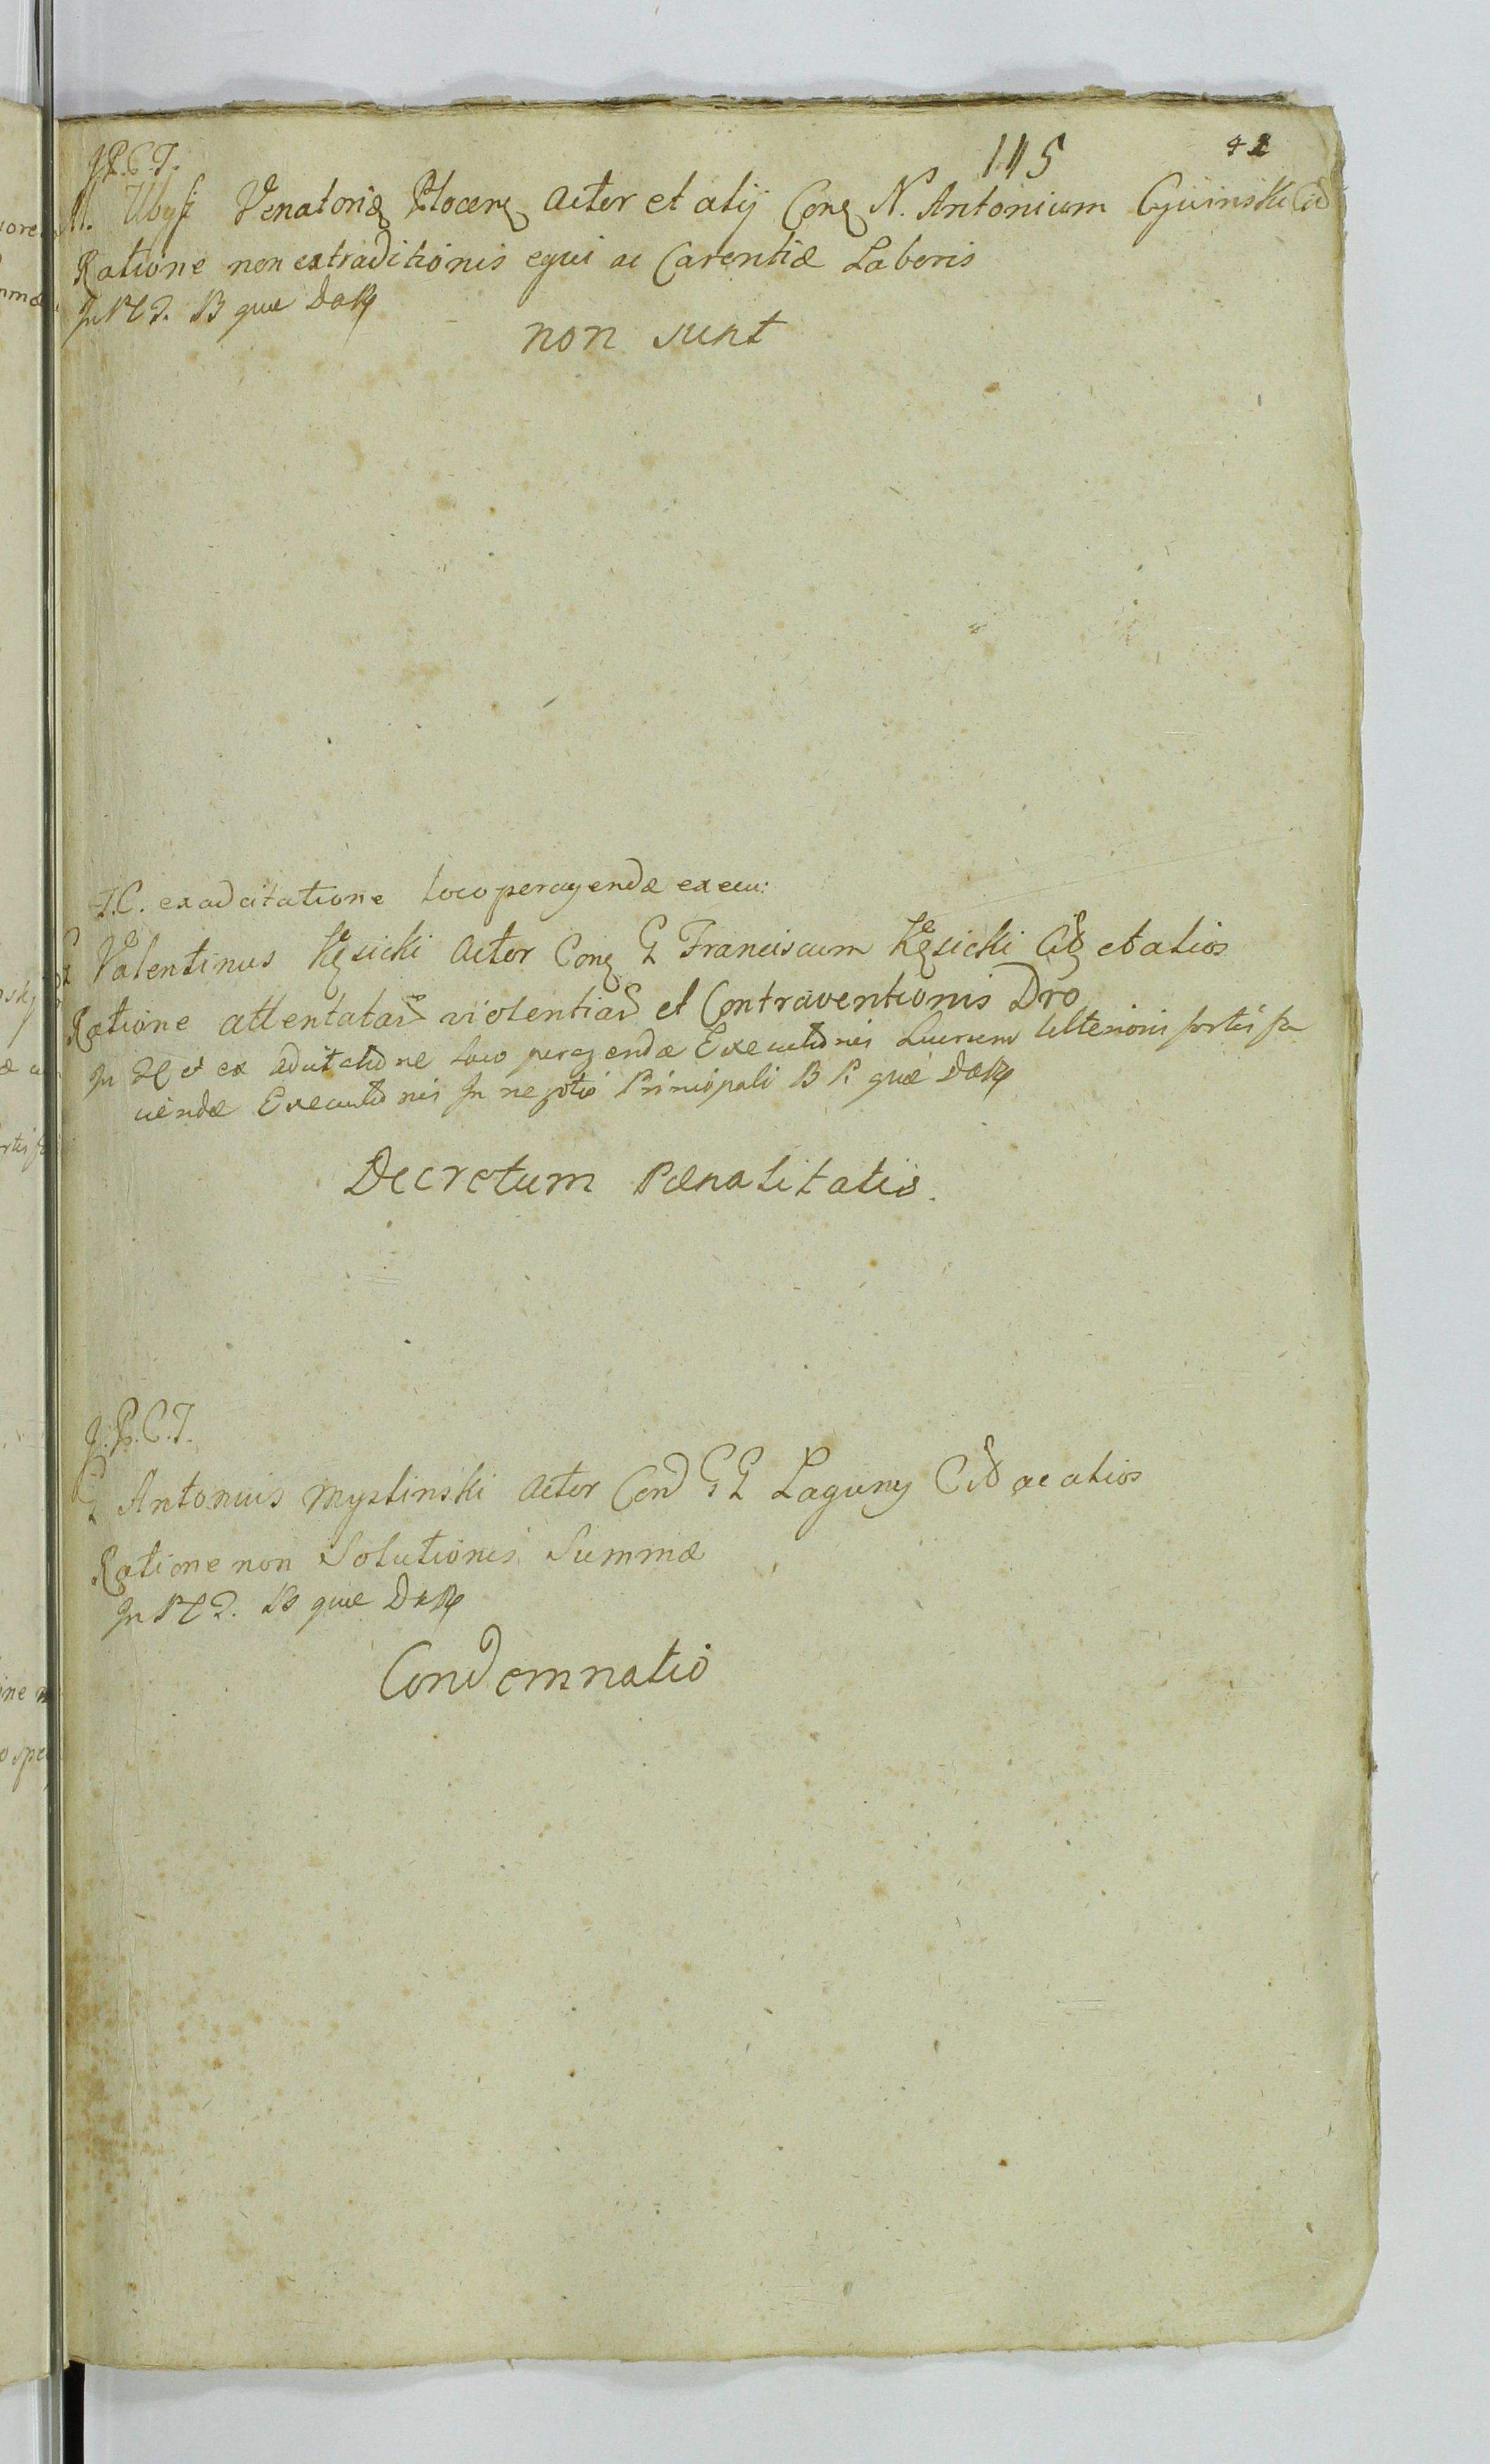 115 42
J.P.C.T.
M. Ubysz Venatoriæ Plocen Actor et alij Con N. Antonium Cywinski Cit
Ratione non extraditionis equi ac Carentiæ Laboris
In quæ
non sunt
T.C. ex adcitatione loco peragendæ execu:
G Valentinus Kęsicki Actor Con G Franciscum Kęsicki Cit et alios
Ratione attentatar violentiar et Contraventionis Dro
In et ex adcitatione loco peragendæ Executionis Lucrum Ulterioris fortis fa
ciendæ Executionis In negotio Principali B P. quæ
Decretum Pœnalitatis.
J.P.C.T.
G Antonius Myslinski Actor Con GG Laguny Cit ac alios
Ratione non Solutionis Summæ
In quæ
Condemnatio